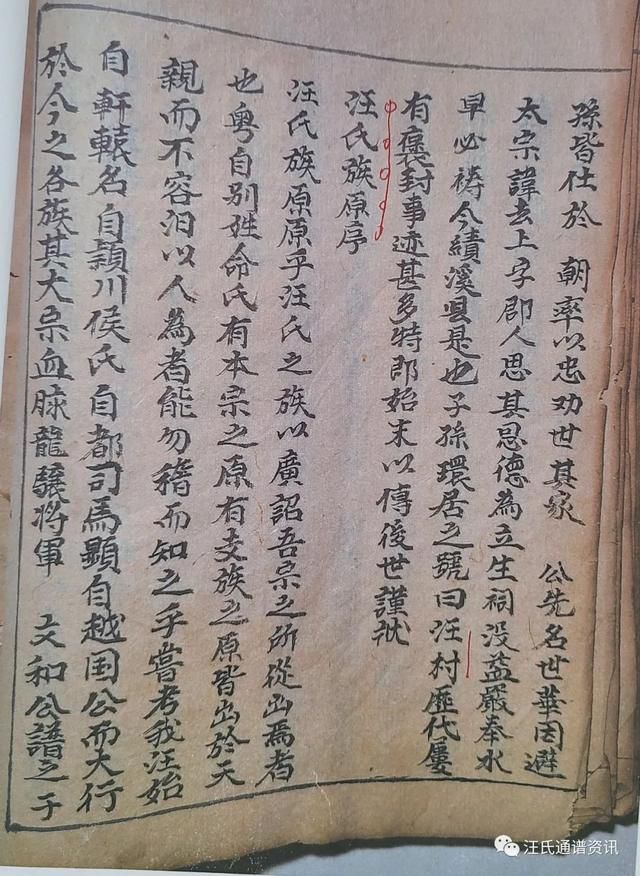 孫皆仕於 朝率以忠劝世其家 公先名世華因避
太宗諱去上字郡人思其恩德為立生祠没益嚴奉水
旱必祷今績溪㫷是也子孫環居之號曰汪村歷代屢
有褒封事迹甚多特郎始末以傳後世謹状
汪氏族原序
汪氏族原原乎汪氏之族以廣詔吾宗之所從出焉者
也粤自别姓命氏有本宗之原有支族之原皆出於天
親而不容汩以人為者能勿稽而知之乎嘗考我汪始
自軒轅名自頴川侯氏自都司馬顯自越国公而大行
於今之各族其大宗血脉龍驤將軍 文和公譜之子
汪氏通谱资讯